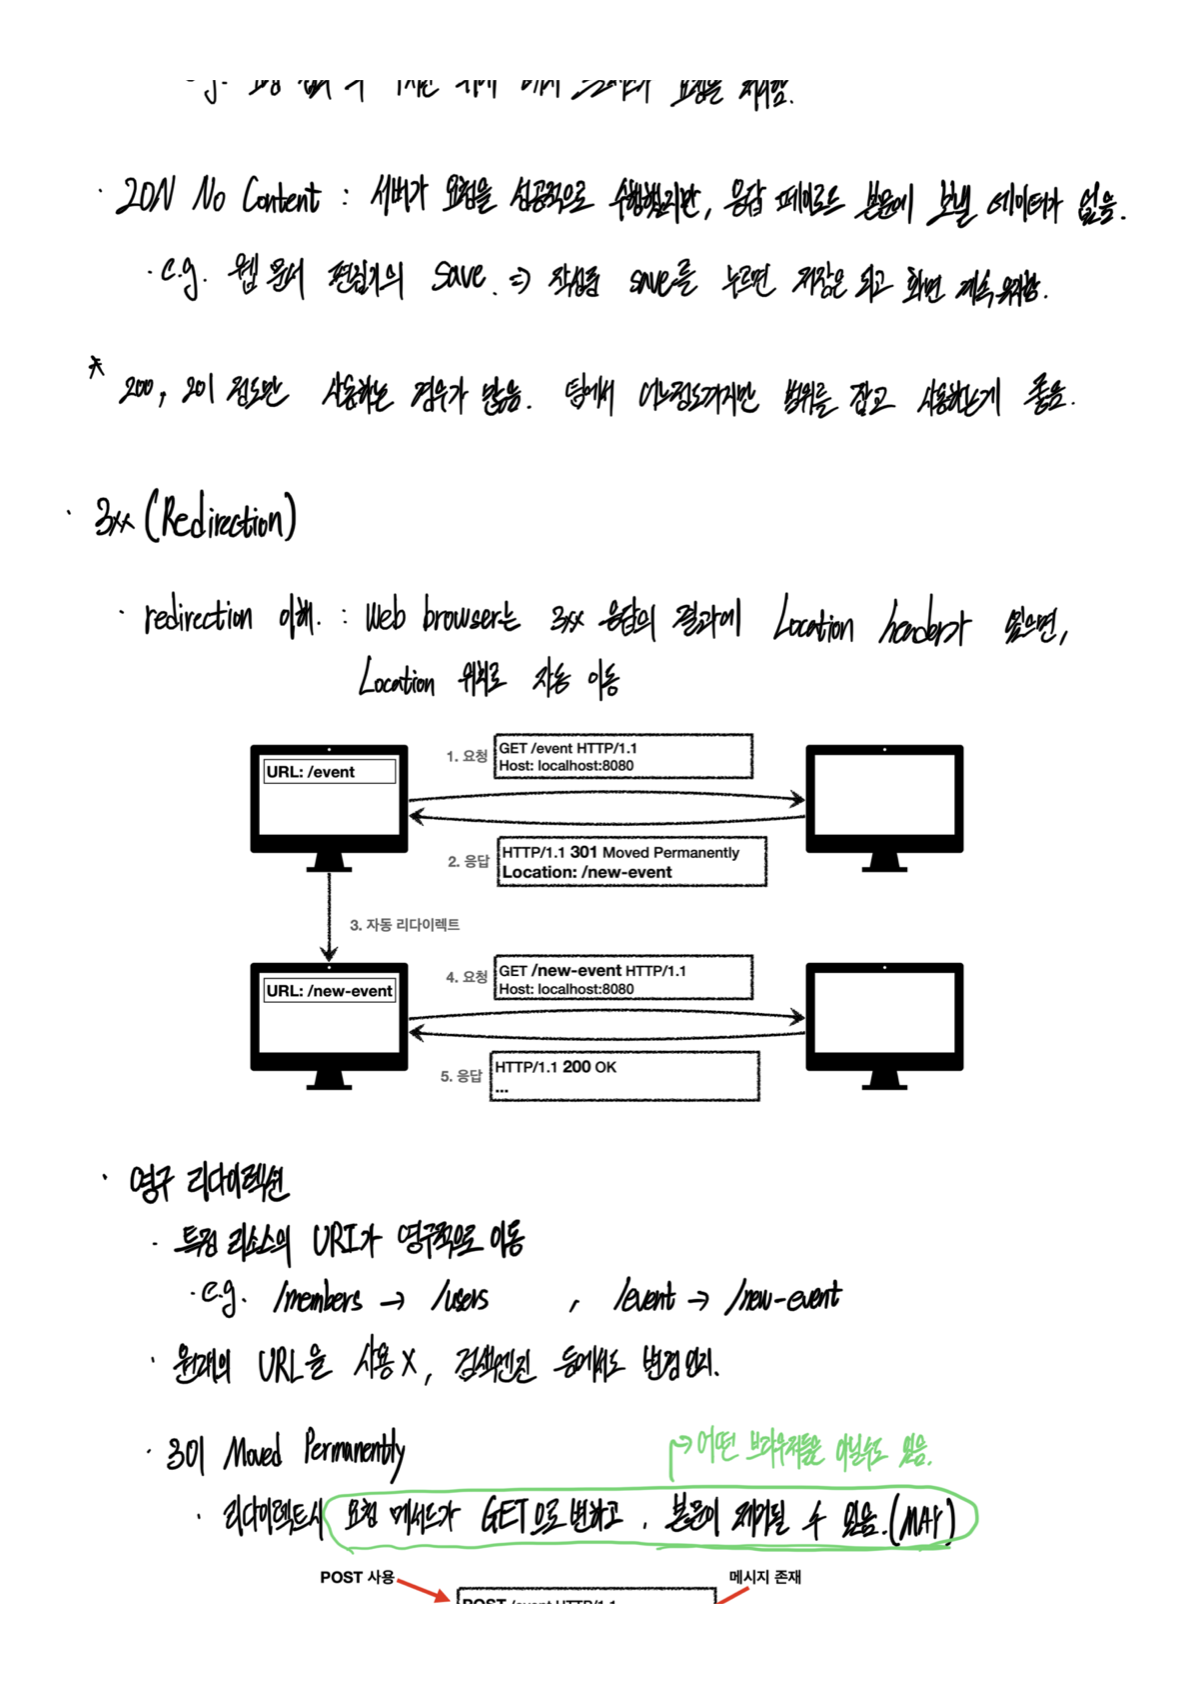 요청을 처리함.
· 204 No Content : 서버가 요청을 성공적으로 수행했지만, 응답 페이로드 본문에 보낼 데이터가 없음.
· e.g. 웹 문서 편집기의 save. ⇒ 작성중 save를 누르면 저장은 되고 화면 계속 유지함.
* 200, 201 정도만 사용하는 경우가 많음. 팀에서 어느정도까지만 범위를 잡고 사용하는게 좋음.
· 3xx (Redirection)
· redirection 이해. : Web browser는 3xx 응답의 결과에 Location header가 있으면,
Location 위치로 자동 이동
URL: /event
1. 요청
GET /event HTTP/1.1
Host: localhost:8080
2. 응답
HTTP/1.1 301 Moved Permanently
Location: /new-event
3. 자동 리다이렉트
URL: /new-event
4. 요청
GET /new-event HTTP/1.1
Host: localhost:8080
5. 응답
HTTP/1.1 200 OK
...
· 영구 리다이렉션
· 특정 리소스의 URI가 영구적으로 이동
· e.g. /members → /users , /event → /new-event
· 원래의 URL을 사용 X, 검색엔진 등에서도 변경 인지.
· 301 Moved Permanently
→ 어떤 브라우저들은 아닐수도 있음.
· 리다이렉트시 요청 메서드가 GET으로 변하고, 본문이 제거될 수 있음. (MAY)
POST 사용
메시지 존재
POST /event HTTP/1.1